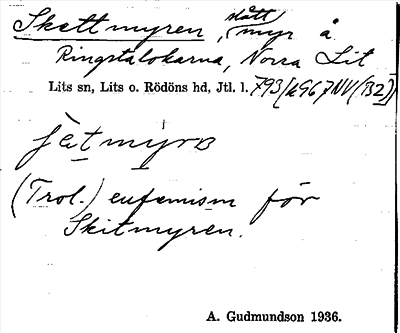 Skettmyren, slått
myr å
Ringstalokarna, Norra Lit
Lits sn, Lits o. Rödöns hd, Jtl. l.
(Trol.) eufemism för
Skitmyren.
A. Gudmundson 1936.